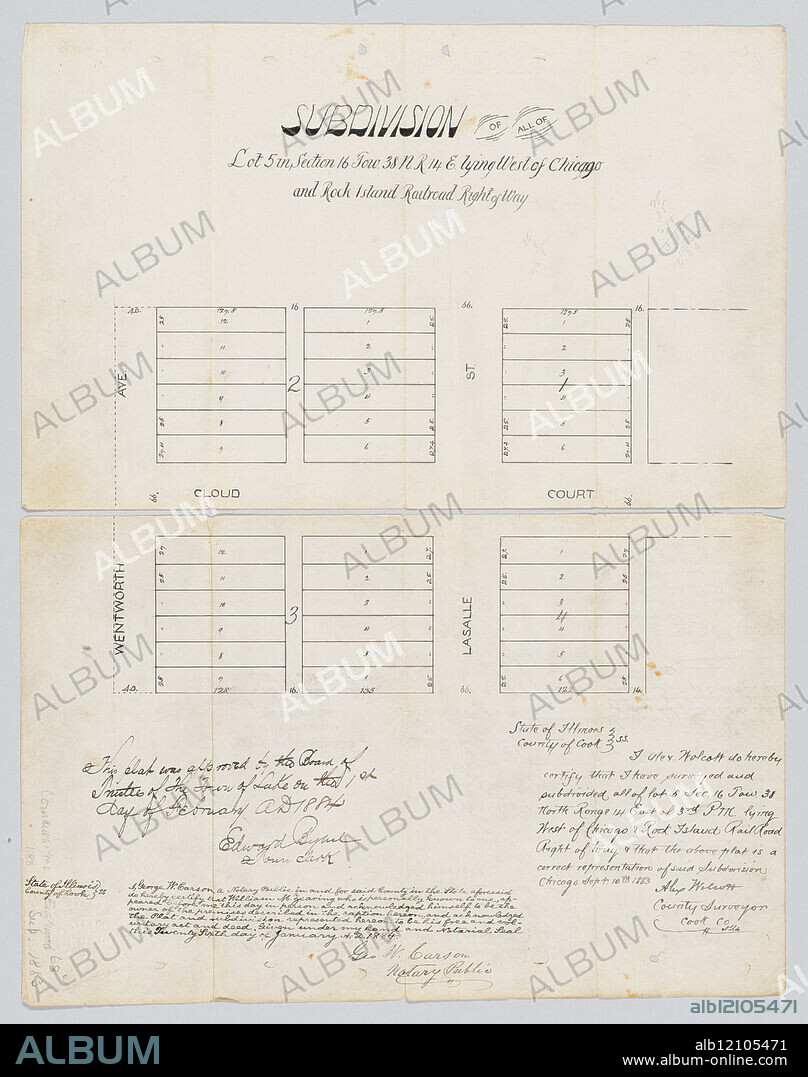 SUBDIVISION OF ALL OF
Lot 5 in Section 16 Tow. 38 N. R 14 E lying West of Chicago
and Rock Island Railroad Right of Way
40. 127.5 16 127.5 66. 127.5 16.
25 12 1 25 25 1 25
11 2 2
10 3 3
AVE. 2 ST. 1
9 4 4
25 8 5 25 25 5 25
27.4 7 6 27.4 27.4 6 27.4
66. CLOUD COURT 66.
27 12 1 27. 27. 1 27
25 11 2 25 25. 2 25
10 3 3
WENTWORTH 3 LASALLE 4
9 4 4
8 5 5
25 7 25 25 6 25
40. 128 16. 135 66. 14.
This plat was approved by the Board of
Trustees of the Town of Lake on the 1st
day of February A.D 1884
Edward
Town Clerk
State of Illinois
County of Cook } SS.
I Alex Wolcott do hereby
certify that I have surveyed and
subdivided all of lot 5 Sec 16 Tow 38
North Range 14 East of 3rd P.M. lying
West of Chicago & Rock Island Rail Road
Right of Way & that the above plat is a
correct representation of said Subdivision
Chicago Sept 10th 1883
Alex Wolcott
County Surveyor
Cook Co
State of Illinois
County of Cook } SS
I, George W. Carson, a Notary Public in and for said County in the State aforesaid
do hereby certify that William M. Gearing who is personally known to me, ap-
peared before me this day in person and acknowledged himself to be the
owner of the premises described in the caption hereon and acknowledged
the Plat and subdivision represented hereon to be his free and vol-
untary act and deed. Given under my hand and Notarial Seal
this Twenty Sixth day of January A.D. 1884
Geo W. Carson
Notary Public
Sep. 1883
ALBUM
alb12105471
ALBUM
alb12105471
www.album-online.com